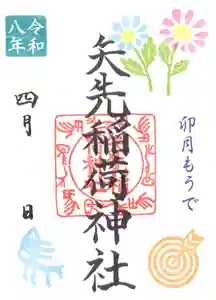 卯月もうで
矢先稲荷神社
令和
八年
四月　日